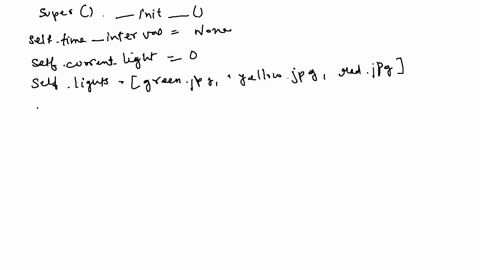 super() . __init__()
self.time_interval = None
self.current light = 0
self.lights = [green.jpg, yellow.jpg, red.jpg]